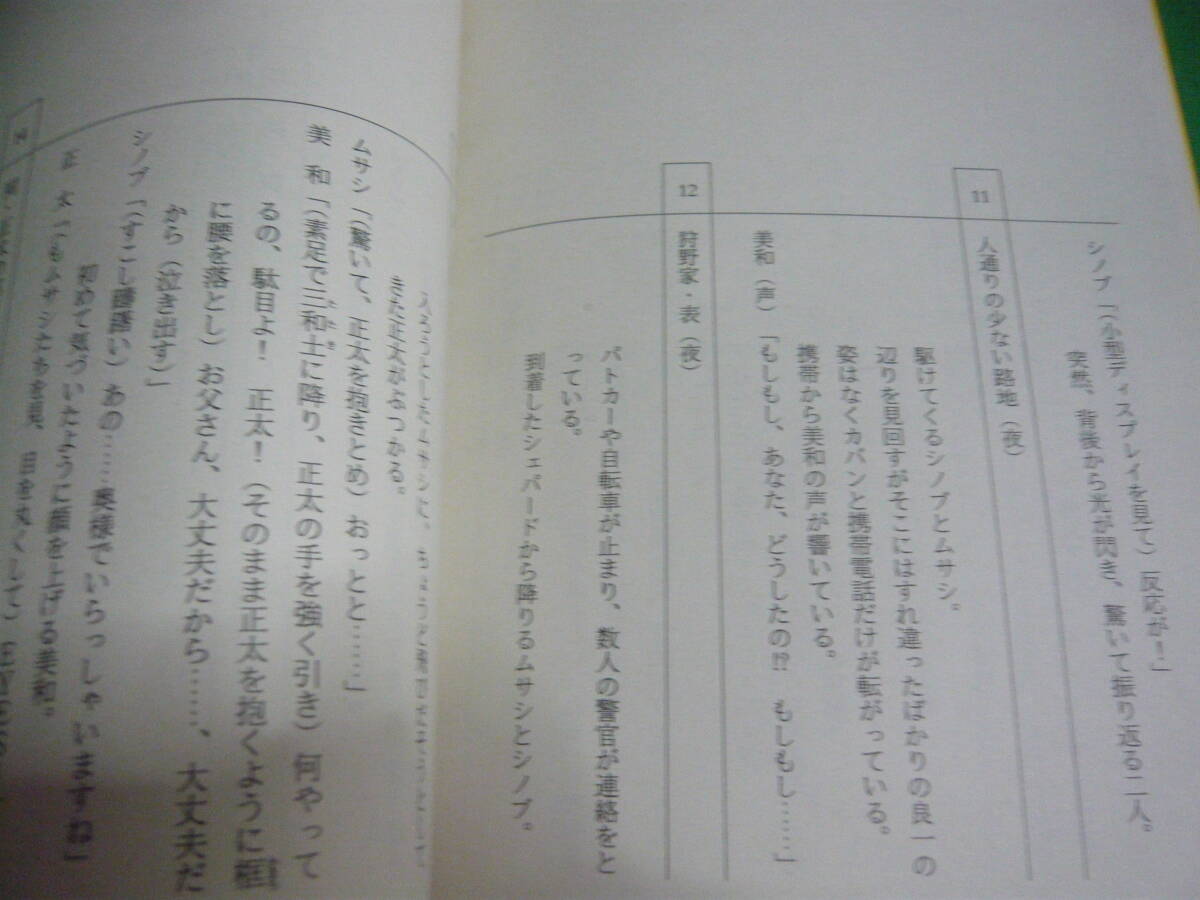 シノブ「(小型ディスプレイを見て)反応が!」
突然、背後から光が閃き、驚いて振り返る二人。
11 人通りの少ない路地(夜)
駆けてくるシノブとムサシ。
辺りを見回すがそこにはすれ違ったばかりの良一の
姿はなくカバンと携帯電話だけが転がっている。
携帯から美和の声が響いている。
美和(声)「もしもし、あなた、どうしたの!? もしもし……」
12 狩野家・表(夜)
パトカーや自転車が止まり、数人の警官が連絡をと
っている。
到着したシェパードから降りるムサシとシノブ。
入ろうとしたムサシに、ちょうど飛びだそうとして
きた正太がぶつかる。
ムサシ「(驚いて、正太を抱きとめ)おっとと……」
美 和「(素足で三和土に降り、正太の手を強く引き)何やって
るの、駄目よ! 正太!(そのまま正太を抱くように框
に腰を落とし)お父さん、大丈夫だから……、大丈夫だ
から(泣き出す)」
シノブ「(すこし躊躇い)あの……奥様でいらっしゃいますね」
初めて気づいたように顔を上げる美和。
正 太「(もムサシたちを見、目を丸くして)